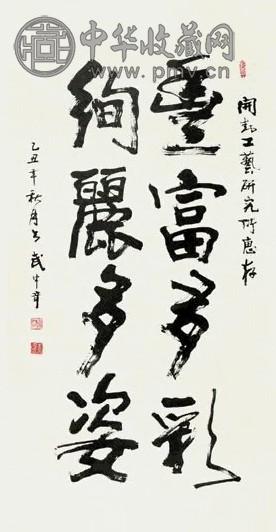 中华收藏网
www.pmv.cn
開封工藝研究所惠存
豐富多彩
絢麗多姿
乙丑年秋月書武中奇